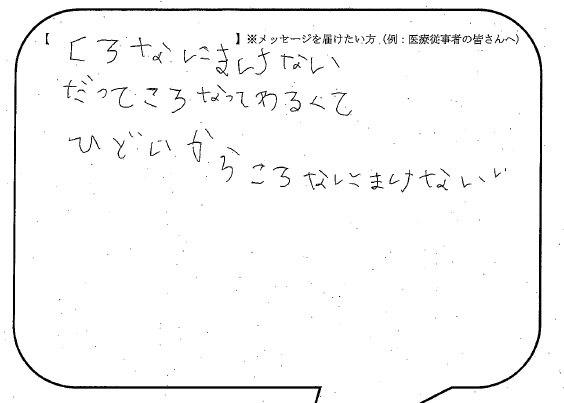 【 】※メッセージを届けたい方(例:医療従事者の皆さんへ)
ころなにまけない
だってころなってわるくて
ひどいからころなにまけないい